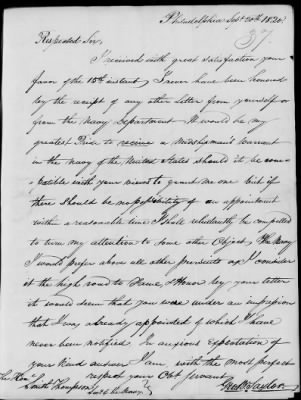 Philadelphia Sept 20th 1820.
37.
Respected Sir,
I received with great satisfaction your
favor of the 15th instant I never have been honored
by the receipt of any other Letter from yourself or
from the Navy Department. It would be my
greatest Pride to receive a midshipman's warrant
in the navy of the United States should it be com-
patible with your views to grant me one but if
there should be no possibility of an appointment
within a reasonable time I shall reluctantly be compelled
to turn my attention to some other Object. The Navy
I would prefer above all other pursuits as I consider
it the high road to Fame & Honor by your letter
it would seem that you were under an impression
that I was already appointed of which I have
never been notified. In anxious expectation of
your kind answer I am with the most perfect
respect your Obt servant
The Honl.
Smith Thompson
Sec of the Navy